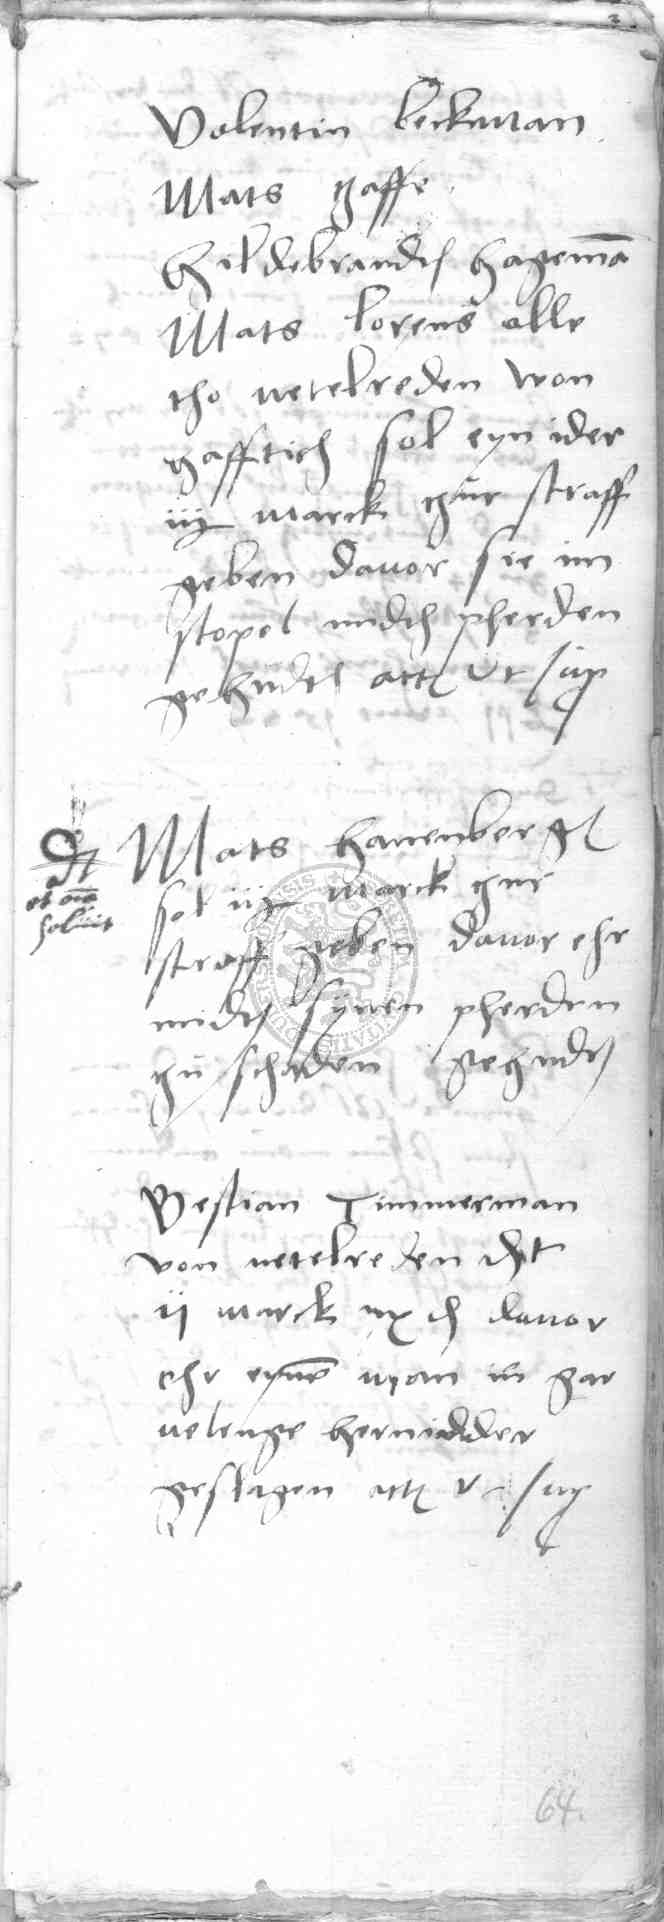 Valentin beckman
Mats gaffe
hildebrandt hagemā
Mats lorens alle
tho netelreden von
gafftich sol eyn ider
iij marck zur straff
geben dauor sie im
stopel midth pherden
gehudt actū vt sup
dt
et oīa
soluit
Mats hanenbergk
sol iij marck zur
straff geben dauor ehr
midt synen pherden
zu schaden gehudt
Bestian Timmerman
von netelreden dt
ij marck davor
ehr eynē man in gar
uelenge hernidder
geslagen actū vt sup
64.